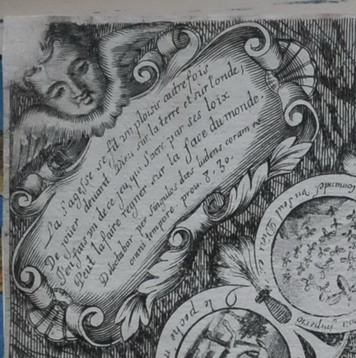 La Sagesse se fit un plaisir autre fois
De jouer devant Dieu sur la terre et sur l'onde,
L'on fait un de ce jeu, qui Sacré par ses loix
Peut la faire regner sur la face du monde.
Delectabar per singulos dies ludens coram eo
omni tempore. prou. 8. 30.